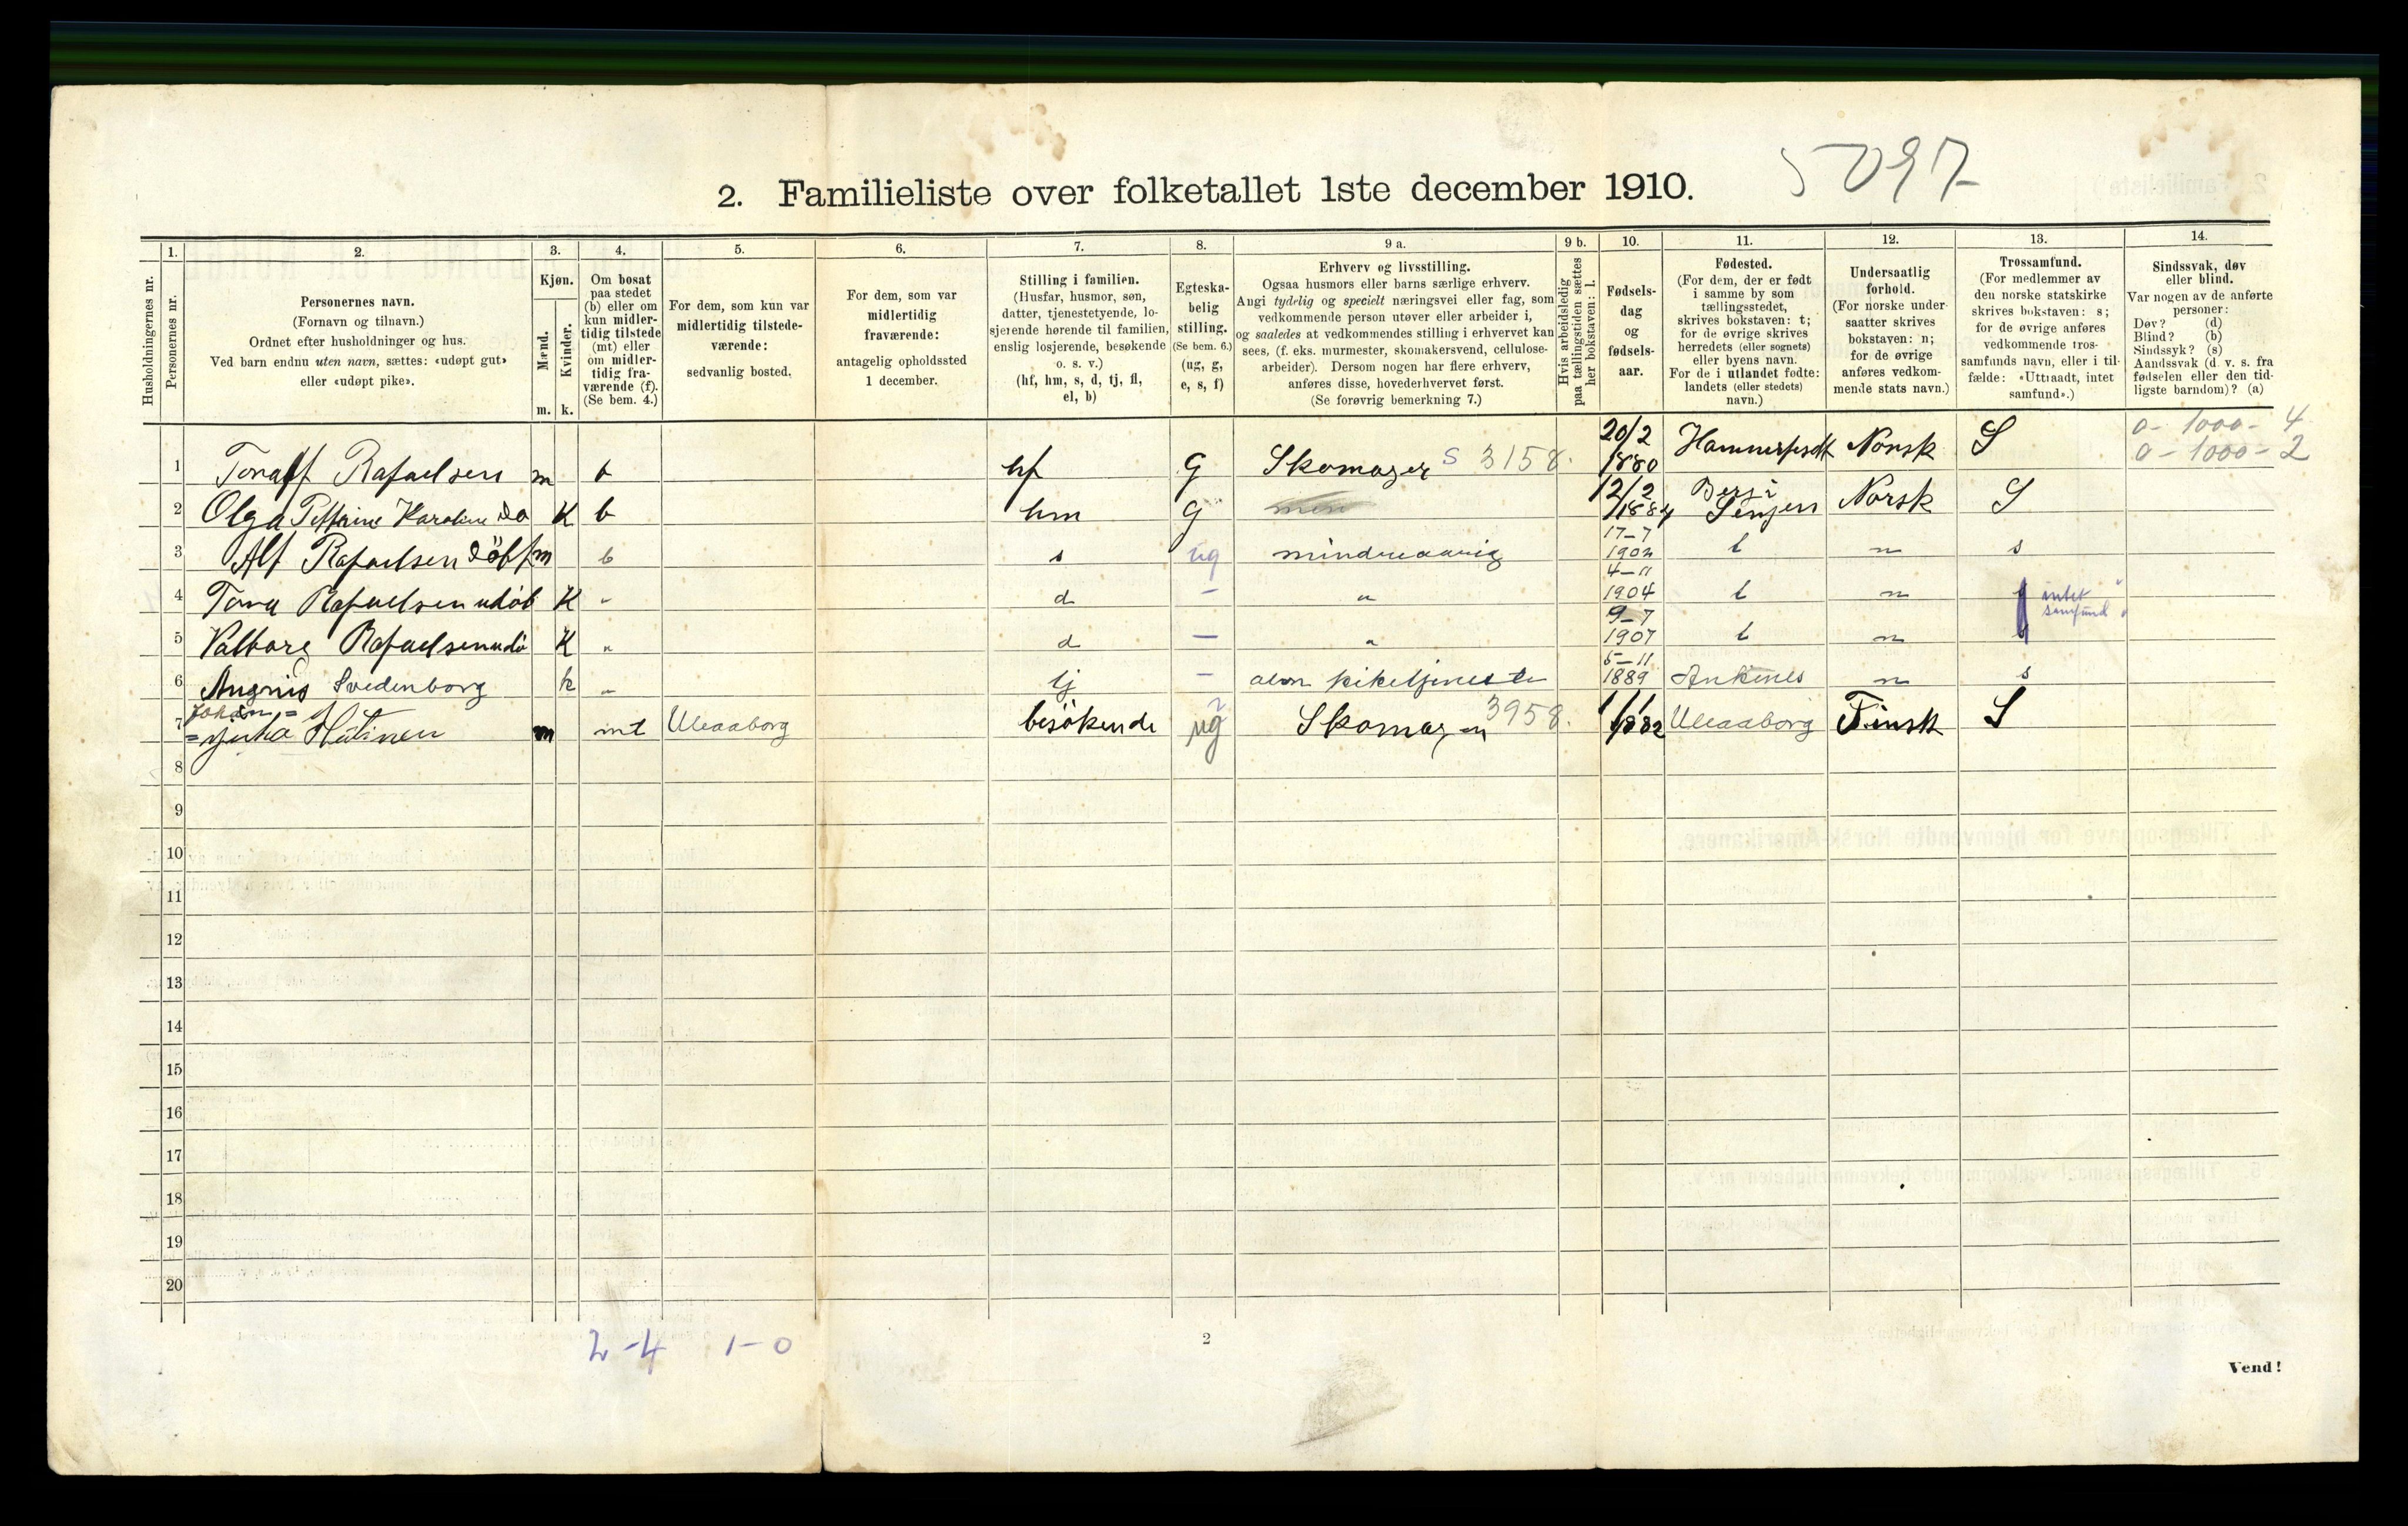 5097
2. Familieliste over folketallet 1ste december 1910.
Husholdningernes nr.
1.
Personernes nr.
2.
Personernes navn.
(Fornavn og tilnavn.)
Ordnet efter husholdninger og hus.
Ved barn endnu uten navn, sættes: «udøpt gut»
eller «udøpt pike».
3.
Kjøn.
Mænd.
Kvinder.
m. k.
4.
Om bosat
paa stedet
(b) eller om
kun midler-
tidig tilstede
(mt) eller
om midler-
tidig fra-
værende (f).
(Se bem. 4.)
5.
For dem, som kun var
midlertidig tilstede-
værende:
sedvanlig bosted.
6.
For dem, som var
midlertidig
fraværende:
antagelig opholdssted
1 december.
7.
Stilling i familien.
(Husfar, husmor, søn,
datter, tjenestetyende, lo-
sjerende hørende til familien,
enslig losjerende, besøkende
o. s. v.)
(hf, hm, s, d, tj, fl,
el, b)
8.
Egteska-
belig
stilling.
(Se bem. 6.)
(ug, g,
e, s, f)
9 a.
Erhverv og livsstilling.
Ogsaa husmors eller barns særlige erhverv.
Angi tydelig og specielt næringsvei eller fag, som
vedkommende person utøver eller arbeider i,
og saaledes at vedkommendes stilling i erhvervet kan
sees, (f. eks. murmester, skomakersvend, cellulose-
arbeider). Dersom nogen har flere erhverv,
anføres disse, hovederhvervet først.
(Se forøvrig bemerkning 7.)
9 b.
Hvis arbeidsledig
paa tællingstiden sættes
her bokstaven: l.
10.
Fødsels-
dag
og
fødsels-
aar.
11.
Fødested.
(For dem, der er født
i samme by som
tællingsstedet,
skrives bokstaven: t;
for de øvrige skrives
herredets (eller sognets)
eller byens navn.
For de i utlandet fødte:
landets (eller stedets)
navn.)
12.
Undersaatlig
forhold.
(For norske under-
saatter skrives
bokstaven: n;
for de øvrige
anføres vedkom-
mende stats navn.)
13.
Trossamfund.
(For medlemmer av
den norske statskirke
skrives bokstaven: s;
for de øvrige anføres
vedkommende tros-
samfunds navn, eller i til-
fælde: «Uttraadt, intet
samfund».)
14.
Sindssvak, døv
eller blind.
Var nogen av de anførte
personer:
Døv? (d)
Blind? (b)
Sindssyk? (s)
Aandssvak (d. v. s. fra
fødselen eller den tid-
ligste barndom)? (a)
0 - 1000 - 4
0 - 1000 - 2
1 Toralf Rafaelsen m b hf G Skomager S 3158. 20/2 1880 Hammerfesdt Norsk S
2 Olga Karoline Do K b hm G 12/2 1884 Senjen Norsk S
3 Alf Rafaelsen m b s ug mindreaarig 17-7 1902 t n s
4 Tora Rafaelsen udöb K " d - " 4-11 1904 t n intet samfund
5 Valborg Rafaelsen udö K " d - " 9-7 1907 t n
6 Svedenborg k " tj - alm piketjeneste 5-11 1889 Ankenes n s
7 m mt Uleaaborg besökende ug Skomager 3958. 1/1 1882 Uleaaborg Finsk S
8
9
10
11
12
13
14
15
16
17
18
19
20
2-4 1-0
2
Vend!